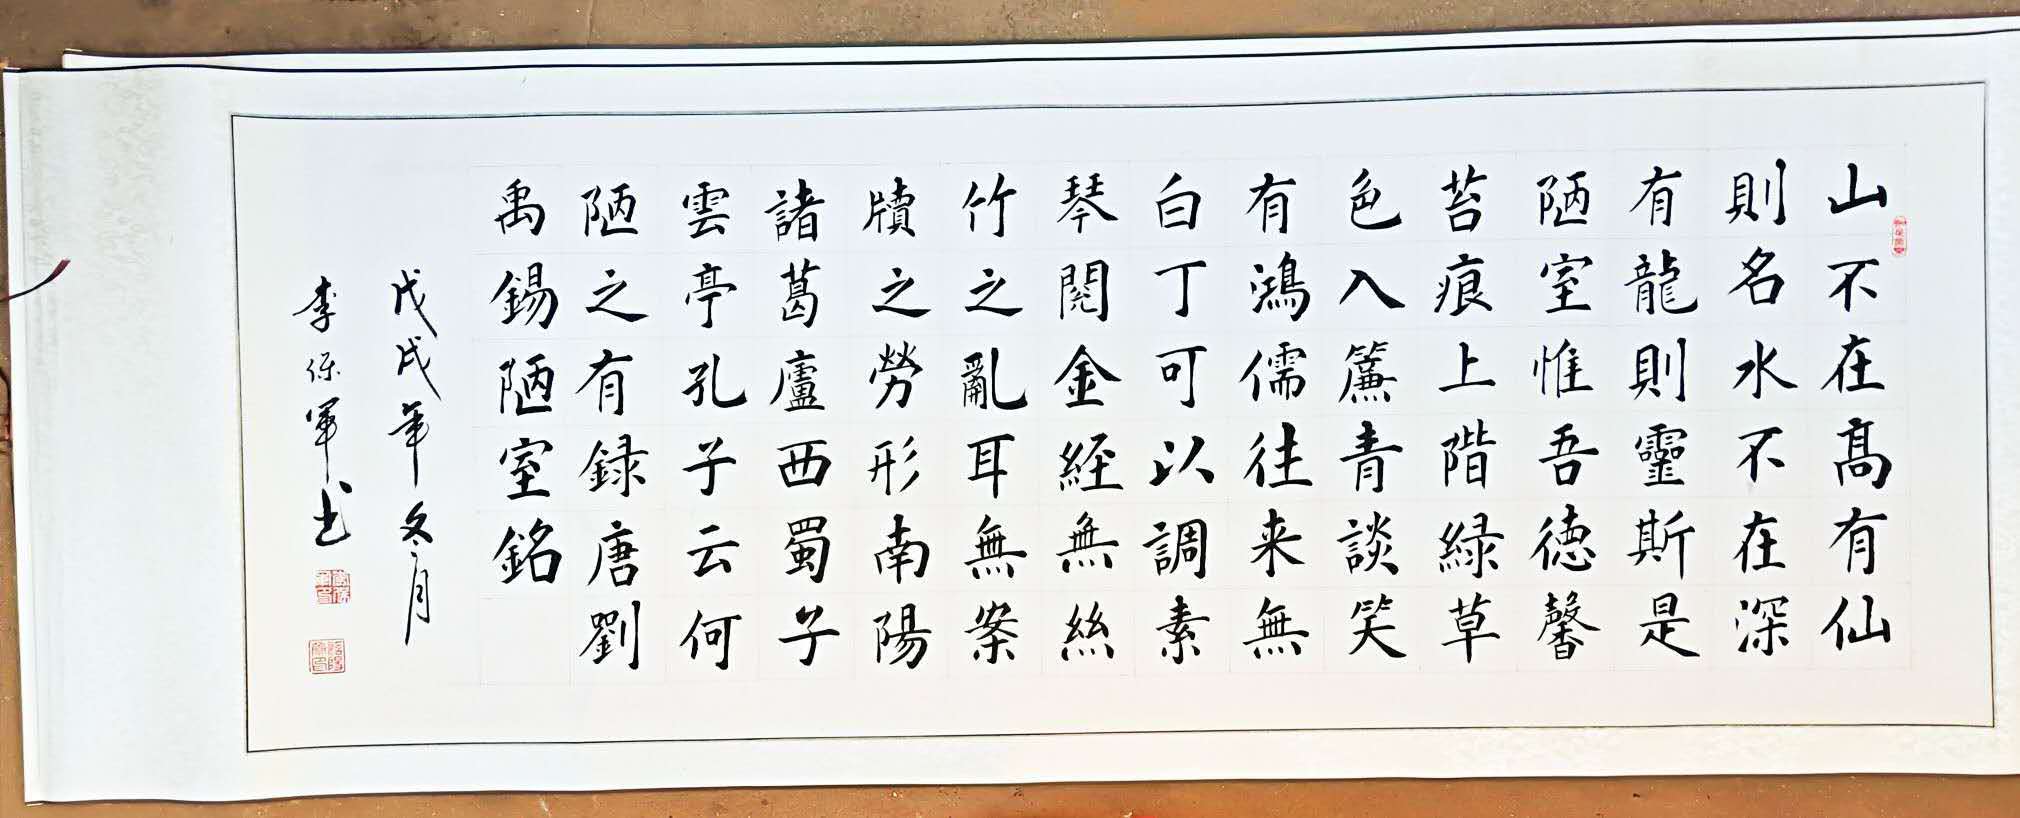 山不在高有仙
則名水不在深
有龍則靈斯是
陋室惟吾德馨
苔痕上階緑草
色入簾青談笑
有鴻儒往来無
白丁可以調素
琴閲金經無絲
竹之亂耳無案
牘之勞形南陽
諸葛廬西蜀子
雲亭孔子云何
陋之有録唐劉
禹錫陋室銘
戊戌年冬月
李保軍书